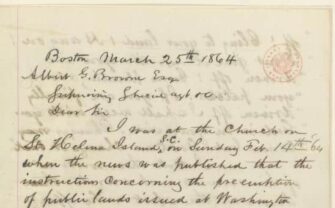 Boston March 25th 1864
Albert G. Browne Esq
Supervising Special agt &c
Dear Sir
I was at the Church on
St. Helena Island, S.C. on Sunday Feb. 14th 64
when the news was published that the
instructions concerning the preemption
of public lands issued at Washington